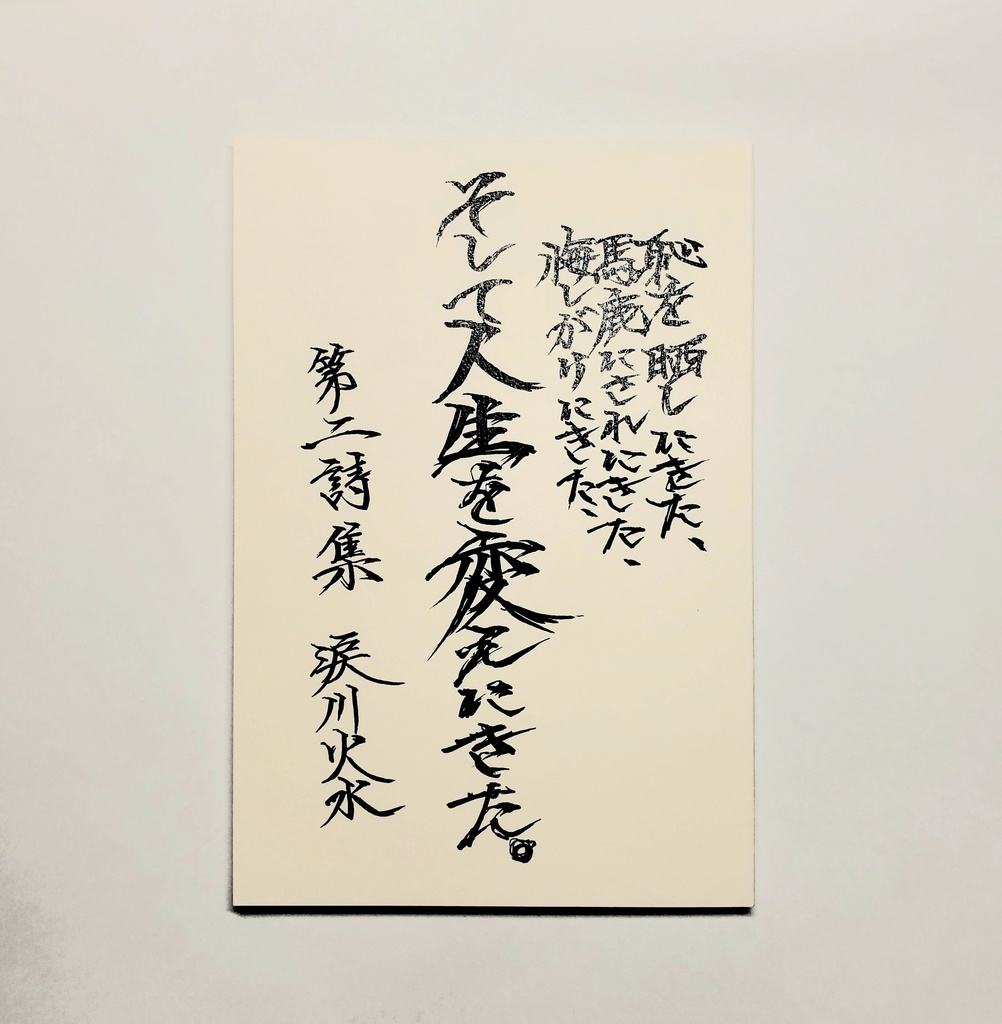 恥を晒しにきた、
馬鹿にされにきた、
悔しがりにきた、
そして人生を変えにきた。
第二詩集 涙川火水